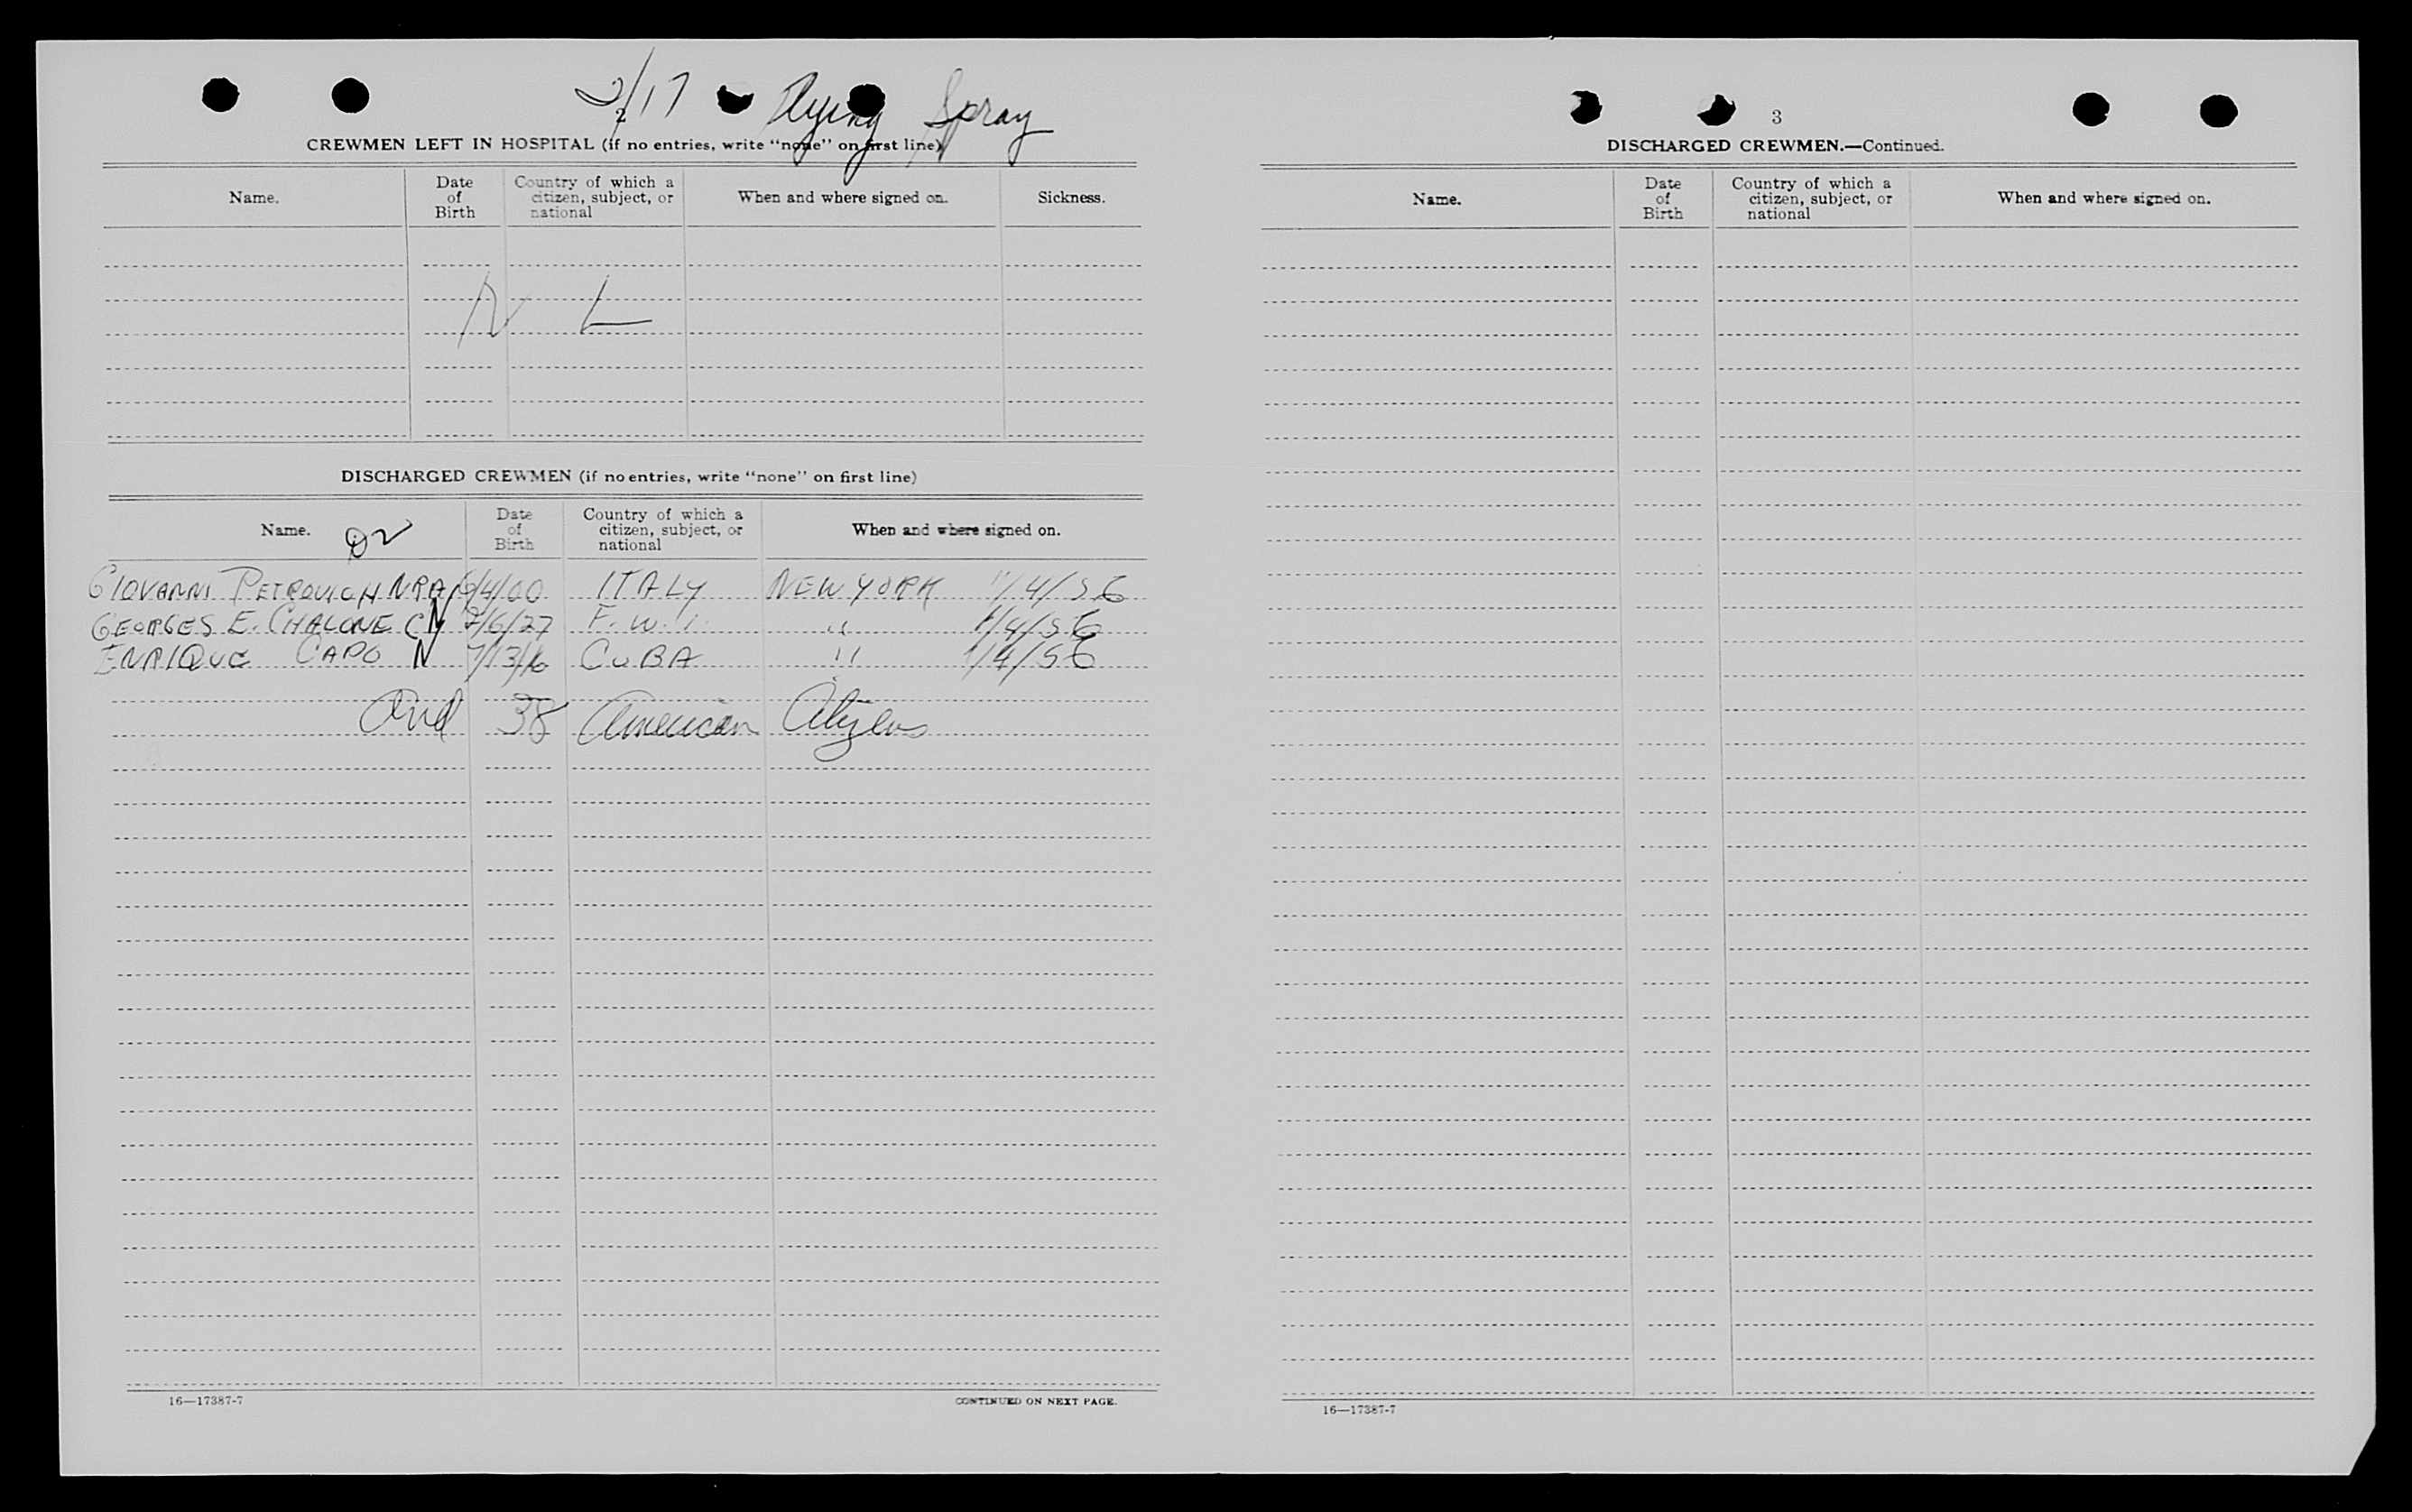 2/17 Flying Spray
2
CREWMEN LEFT IN HOSPITAL (if no entries, write “none” on first line)
Name. Date of Birth Country of which a citizen, subject, or national When and where signed on. Sickness.
N L
DISCHARGED CREWMEN (if no entries, write “none” on first line)
Name. Date of Birth Country of which a citizen, subject, or national When and where signed on.
GIOVANNI PETROVICH NRA /4/00 ITALY NEW YORK 1/4/56
GEORGES E. CHALONE N 2/6/27 F. W. I. " 1/4/56
ENRIQUE CAPO N 7/13/16 CUBA " 1/4/56
And 38 American Citizens
16—17387-7 CONTINUED ON NEXT PAGE.
3
DISCHARGED CREWMEN.—Continued.
Name. Date of Birth Country of which a citizen, subject, or national When and where signed on.
16—17387-7